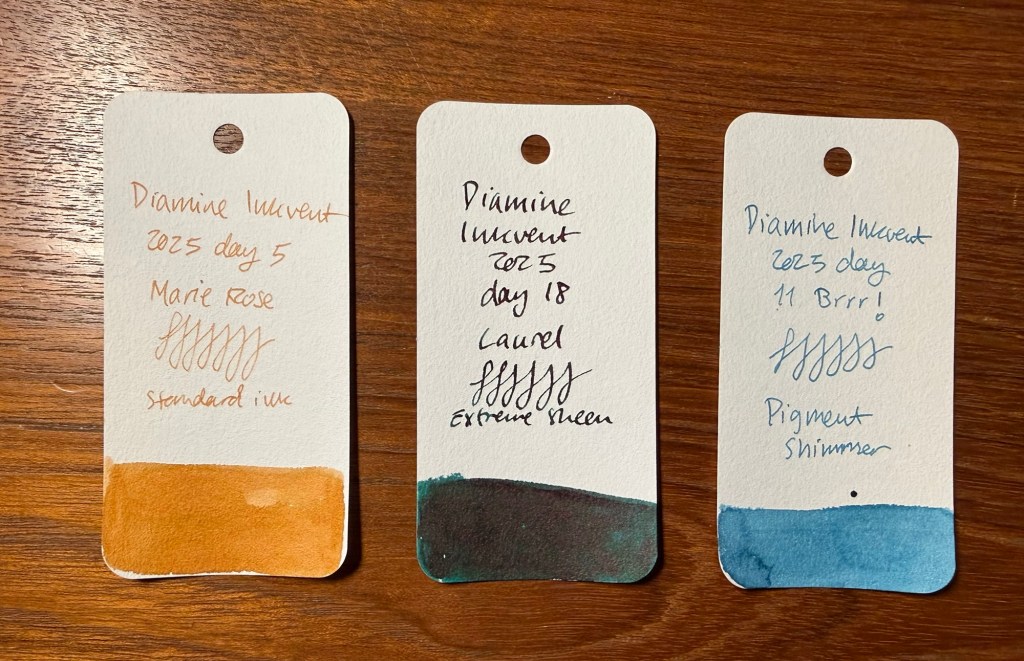 Diamine Inkvent
2025 day 5
Marie Rose
standard ink
Diamine
Inkvent
2025
day 18
Laurel
Extreme Sheen
Diamine Inkvent
2025 day
11 Brrr!
Pigment
Shimmer